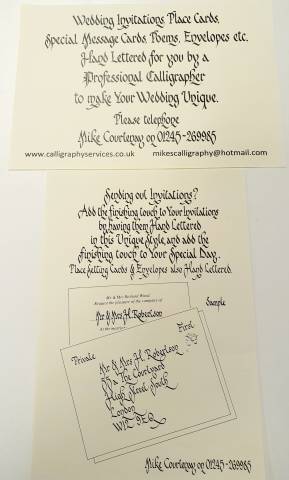 Wedding Invitations Place Cards,
Special Message Cards, Poems, Envelopes etc.
Hand Lettered for you by a
Professional Calligrapher
to make Your Wedding Unique.
Please telephone
Mike Courtenay on 01245-269985
www.calligraphyservices.co.uk mikescalligraphy@hotmail.com
Sending out Invitations?
Add the finishing touch to Your Invitations
by having them Hand Lettered
in this Unique Style, and add the
Finishing touch to Your Special Day.
Place Setting Cards & Envelopes also Hand Lettered.
Mr & Mrs Richard Wood
Request the pleasure of the company of
Sample
Mr & Mrs H. Robertson
At the
Private
First
Mr & Mrs H. Robertson
The Courtyard
High Street North
London
W12 9EQ
Mike Courtenay on 01245-269985